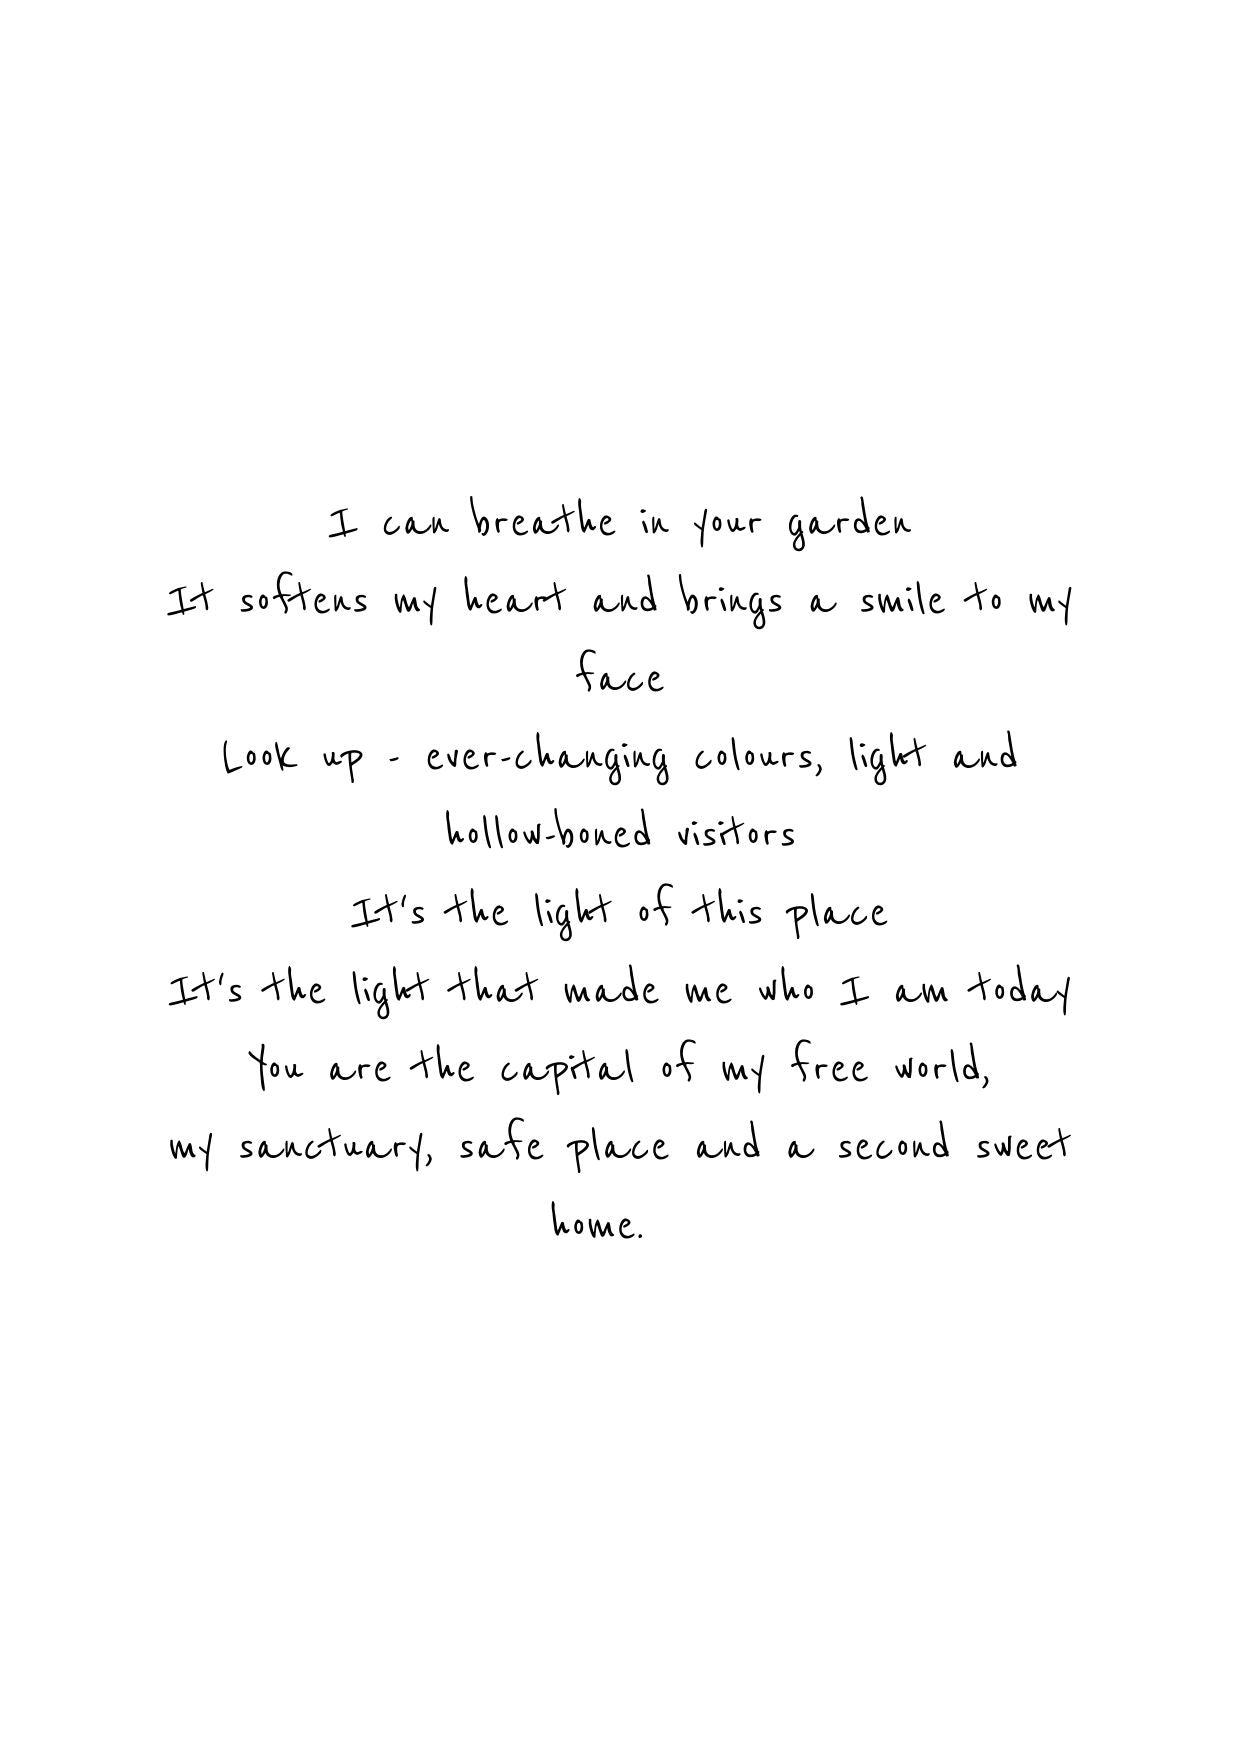 I can breathe in your garden
It softens my heart and brings a smile to my
face
Look up - ever-changing colours, light and
hollow-boned visitors
It's the light of this place
It's the light that made me who I am today
You are the capital of my free world,
my sanctuary, safe place and a second sweet
home.